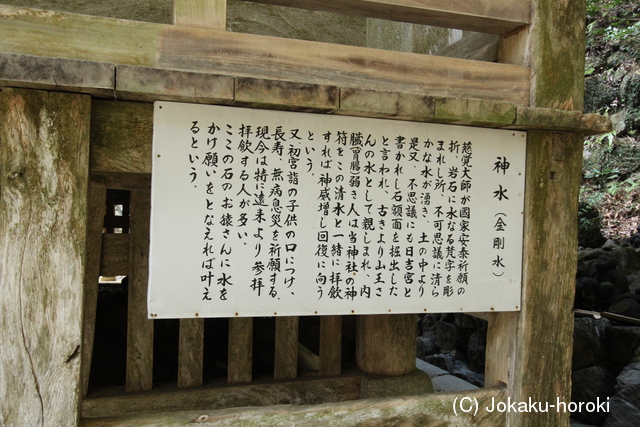 神水（金剛水）
慈覚大師が國家安泰祈願の
折、岩石に水なる梵字を彫
まれし所、不可思議に清ら
かな水が湧き、土の中より
是又、不思議にも日吉宮と
書かれし石額面を掘出した
と言われ、古きより山王さ
んの水として親しまれ、内
臓（胃腸）弱き人は当神社の神
符をこの清水と一緒に拝飲
すれば神威増し回復に向う
という。
又、初宮詣の子供の口につけ、
長寿、無病息災を祈願する。
現今は特に遠来より参拝
拝飲する人が多い。
ここの石のお猿さんに水を
かけ願いをとなえれば叶え
るという。
(C) Jokaku-horoki